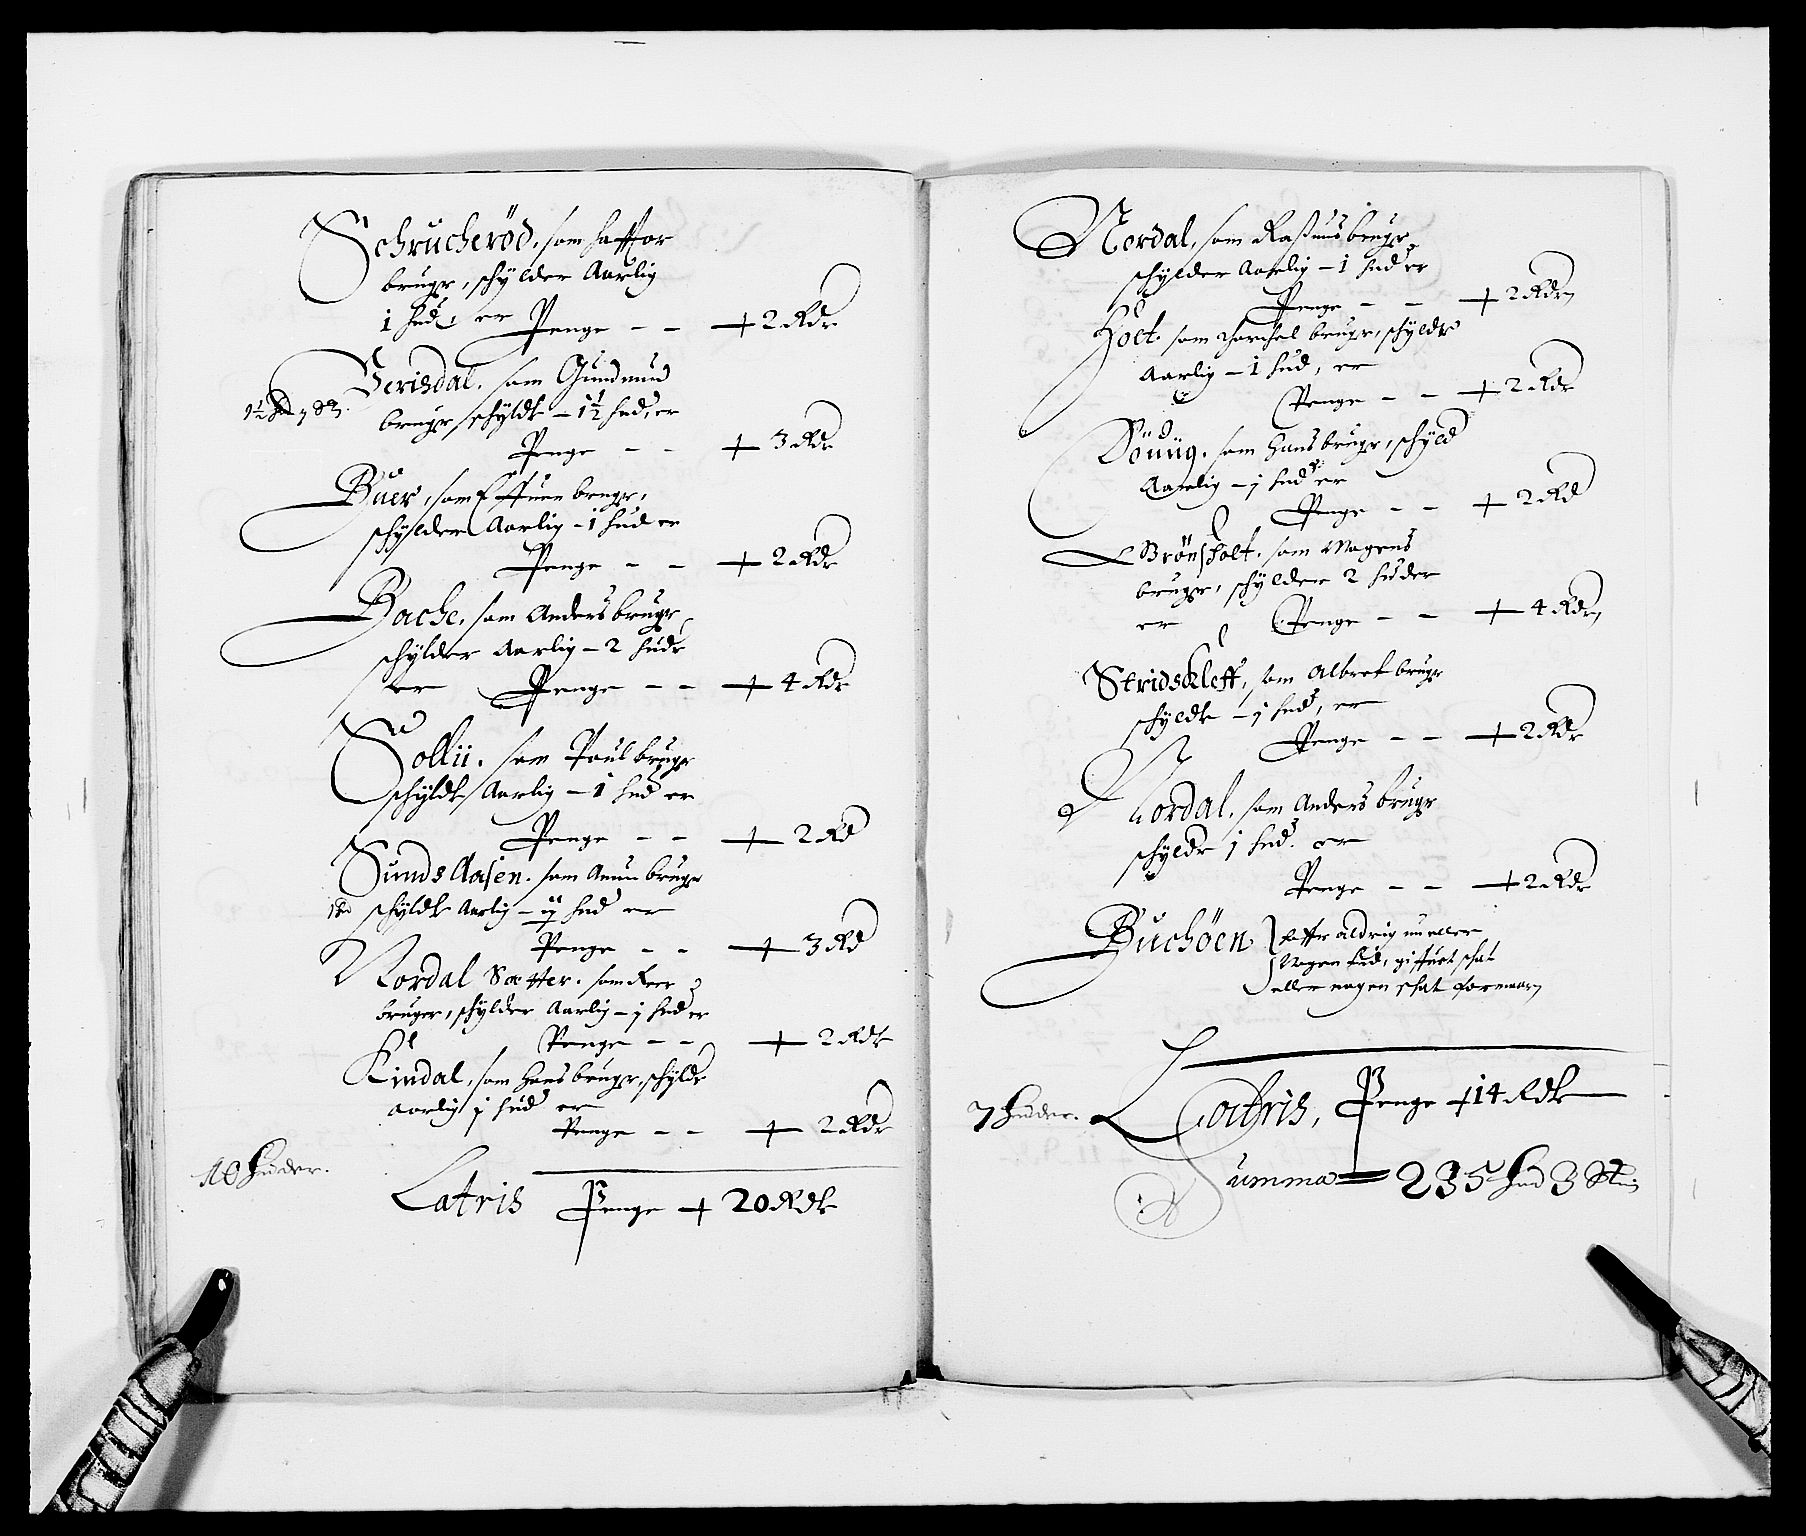 Schrucherød, som Haffvor
bruger, schylder Aarlig
1 hud, er Penge - - + 2 Rdr
Gerisdal, som Gundmund
bruger, schyldr - 1½ hud, er
Penge - - + 3 Rdr
Buer, som bruger,
schylder Aarlig - 1 hud er
Penge - - + 2 Rdr
Bache, som Anders bruger,
schylder Aarlig - 2 hudr
er Penge - - + 4 Rdr
Sollii, som Poul bruger
schyldr Aarlig - 1 hud er
Penge - - + 2 Rd
Sunds Aasen, som Amun bruger
schyldr Aarlig - hud er
Penge - - + 3 Rd
Nordal Sætter, som Peer
bruger, schylder Aarlig - j hud er
Penge - - + 2 Rdr
Kindal, som Hans bruger, schyldr
Aarlig j hud er
Penge - - + 2 Rdr
10 Huder.
Latris Penge + 20 Rdr
Nordal, som Rasmus bruger,
schylder Aarlig - 1 hud er
Penge - - + 2 Rdr
Holt, som Torchel bruger, schyldr
Aarlig - 1 hud, er
Penge - - + 2 Rdr
som Hans bruger, schyld
Aarlig - j hud er
Penge - - + 2 Rd
Brønsholt, som Mogens
bruger, schylder 2 huder
er Penge - - + 4 Rdr
Stridskleff, som Albret bruger
schyldr - j hud, er
Penge - - + 2 Rdr
Nordal, som Anders bruger
schyldr j hud. er
Penge - - + 2 Rdr
Buchøen haffr aldrig nu eller
Nogen tid, giffuet schat
eller nogen schat formaar
7 Huder.
Latris, Penge + 14 Rdr
Summa = 235 Hud 3